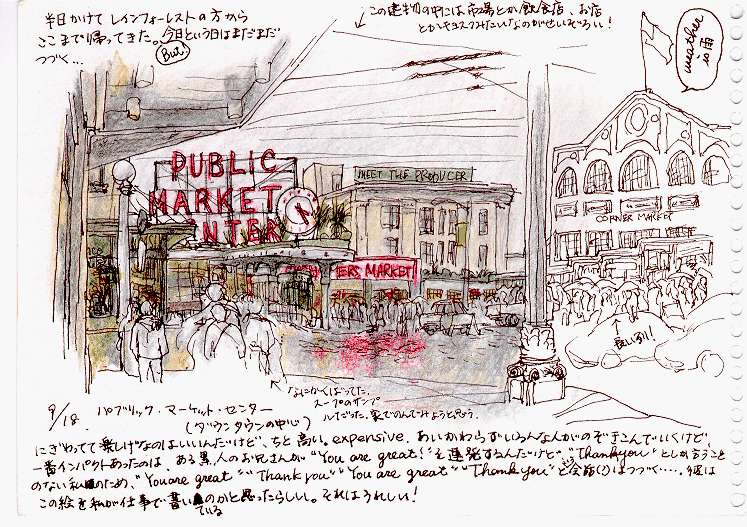 半日かけて レインフォーレストの方から
ここまで帰ってきた。今日という日はまだまだ
つづく… But!
この建物の中には市場とか飲食店、お店
とかキオスクみたいなのがせいぞろい!
weather
雨
PUBLIC
MARKET
NTER
MEET THE PRODUCER
ERS MARKET
CORNER MARKET
長い列!
なにかくばってた。
スープのサンプ
ルだった。家でのんでみようと思う。
9/18. パブリック・マーケット・センター
(ダウンタウンの中心)
にぎわってて楽しげなのはいいんだけど、ちと高い。expensive. あいかわらずいろんな人がのぞきこんでいくけど、
一番インパクトあったのは、ある黒人のお兄さんが "You are great!" を連発するんだけど "Thank you" としか言うこと
のない私のため、"You are great" "Thank you" "You are great" "Thank you" という会話(?)はつづく…. 彼は
この絵を私が仕事で書いているのかと思ったらしい。それはうれしい!